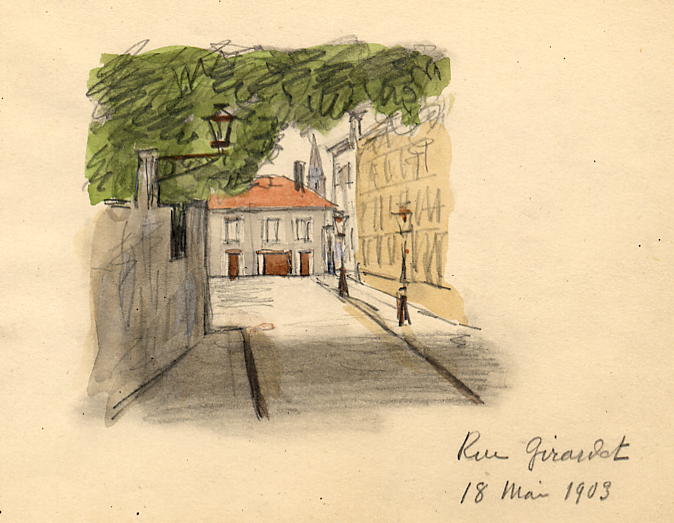 Rue Girardet
18 Mai 1903